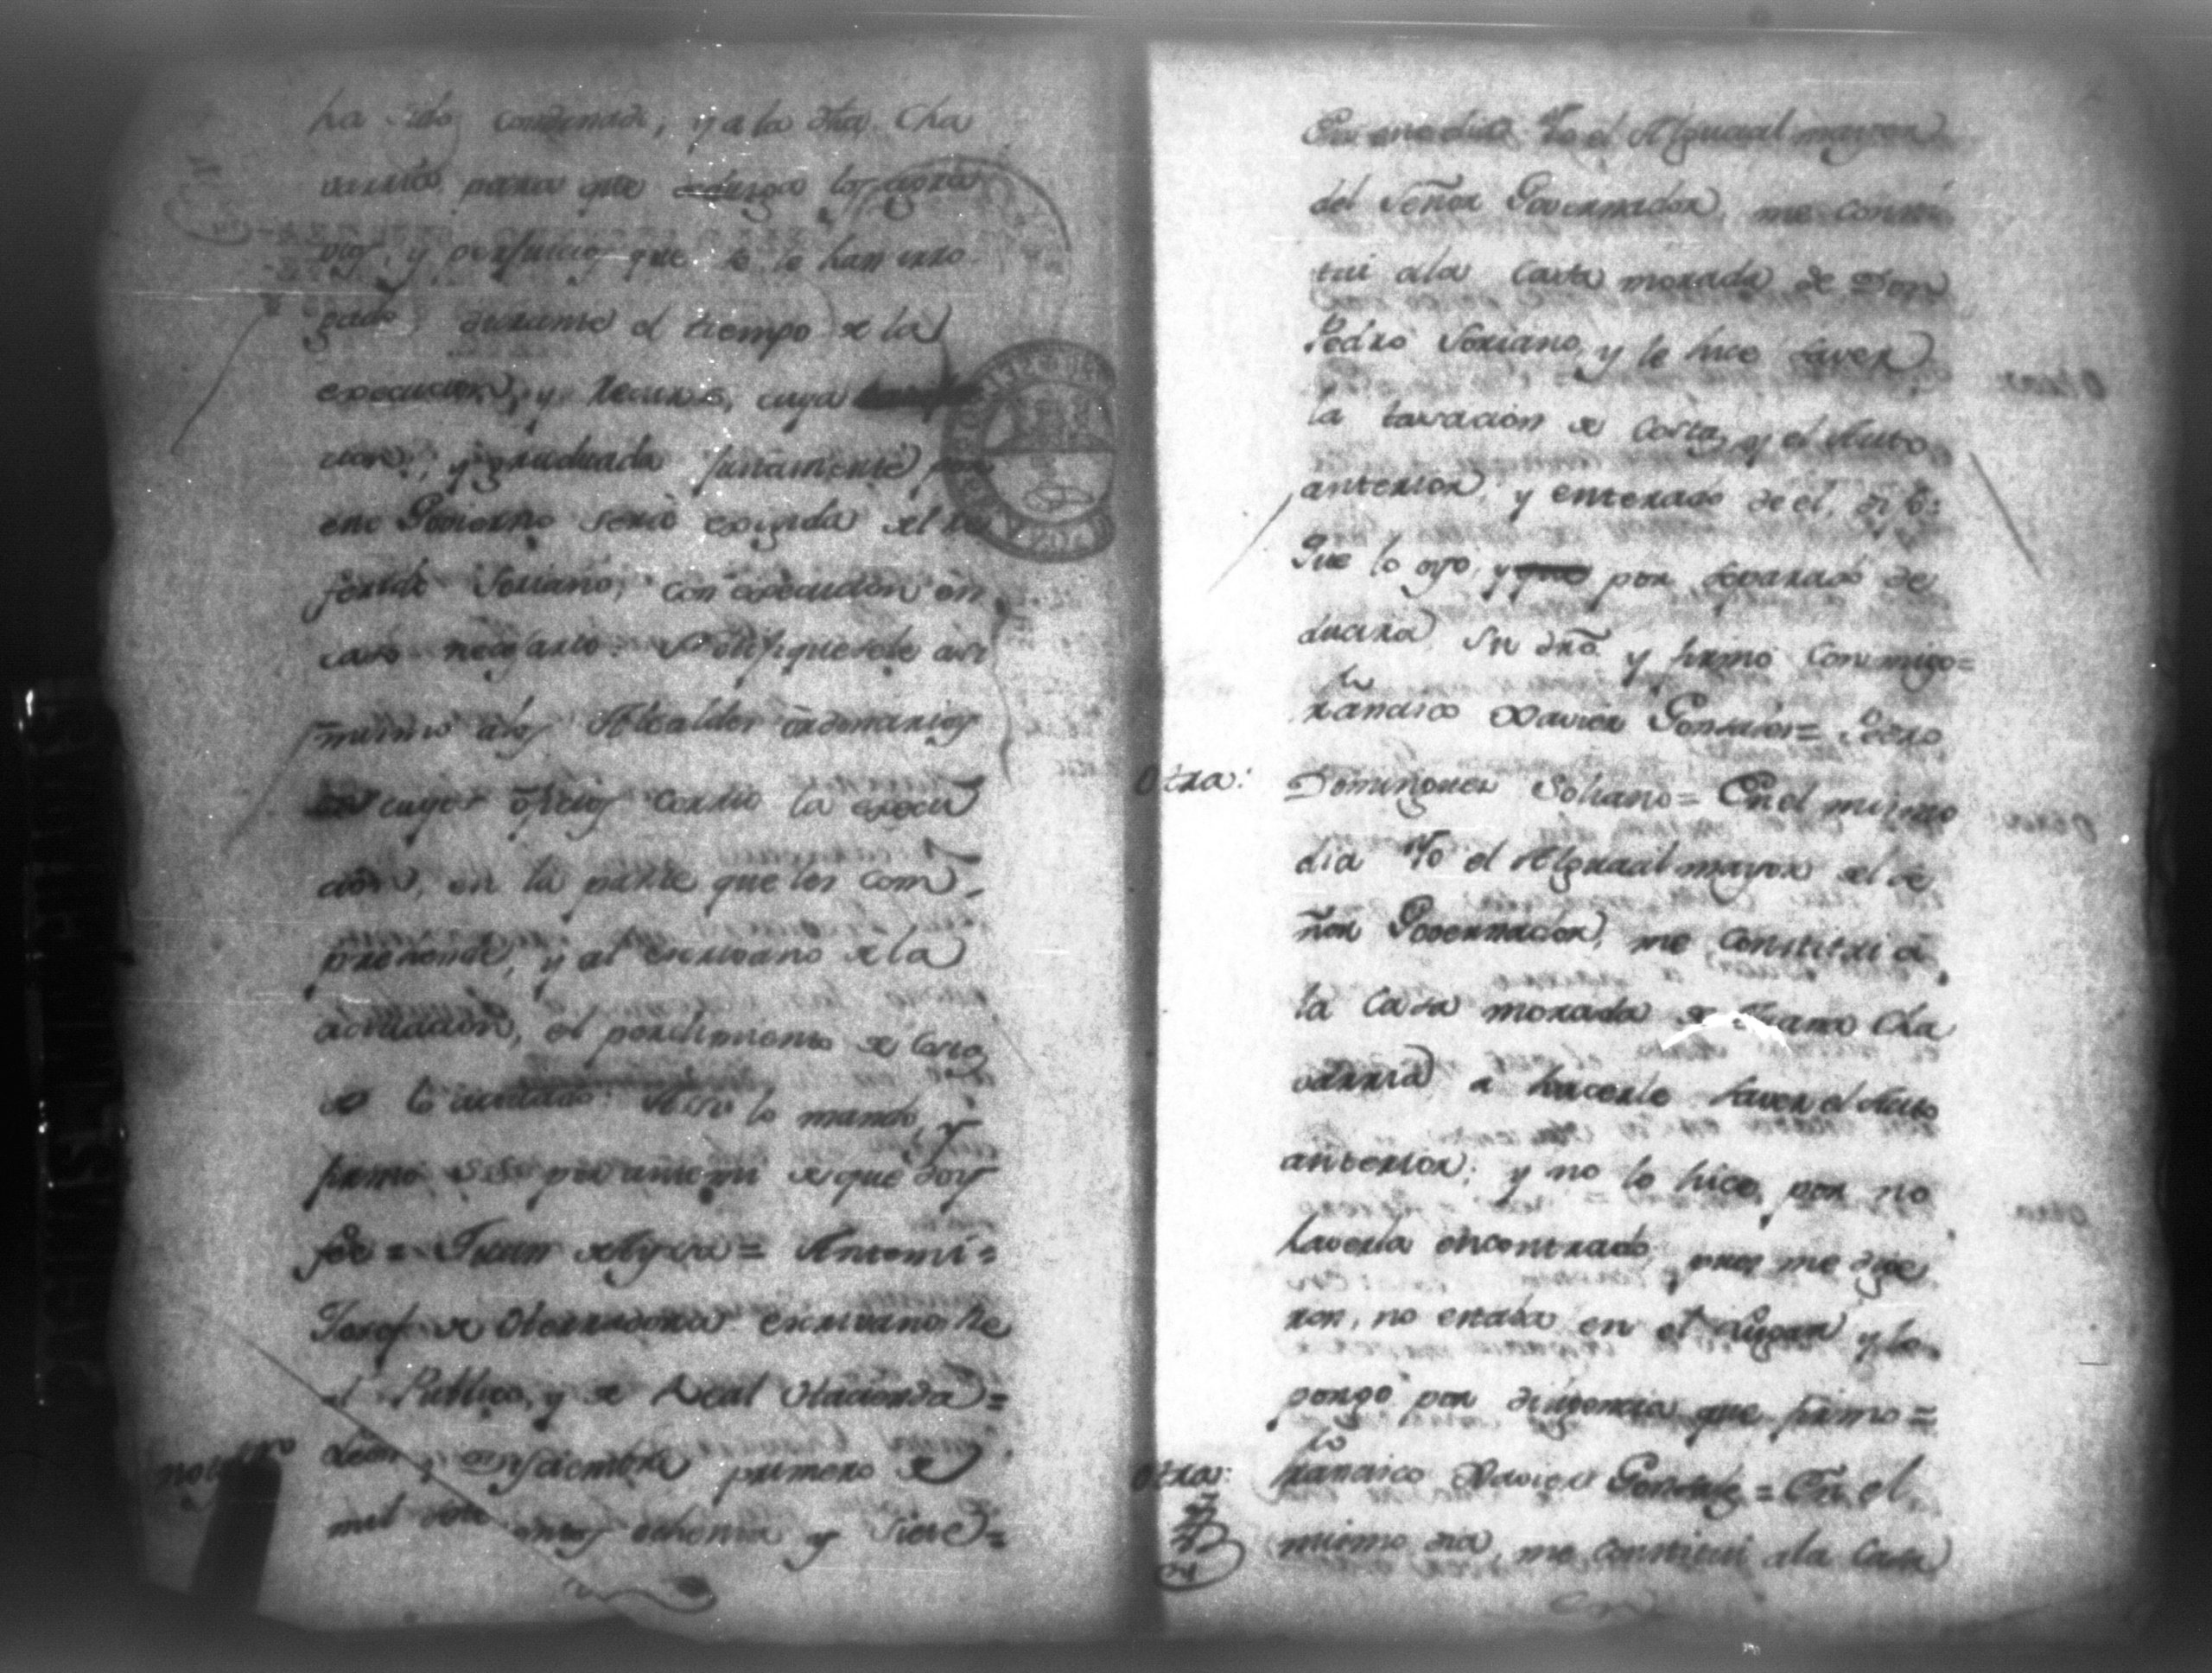 ha sido condenado, y a la dha. Cha
varria para que deduzga los agra
vios, y perjuicios que se le han erro
gado, durante el tiempo de la
execucion, y Recurso, cuya
cion, y graduada juntamente por
ese Govierno será exigida del re
feride Soriano, con execucion en
caso nece$ario. Notifiquesele asi
mismo a los Alcaldes ordinarios
cuyos oficios corrio la execu
cion, en la parte que les com-
prehende, y al escrivano de la
actuacion, el perdimiento de costas
de lo actuado: Asi lo mandó, y
firmo S.S. por ante mi de que doy
fée = Juan de = Antemi =
Josef de escrivano Rl.
el Publico, y de Real Hacienda =
Leon, y Diziembre primero de
mil sete cientos ochenta y siete =
Por ene dias Yo el Alguacil mayor
del Señor Governador, me consti
tui ala casa morada de Don
Pedro Soriano, y le hice saver
la tasacion de costas, y el Auto
anterior, y enterado de el, dixo:
Que lo oyo, y por separado de
ducira su dro. y firmó conmigo =
Francisco Xavier Gonsales = Pedro
Otra:
Dominguez Soriano = En el mismo
dia Yo el Alguacil mayor del Se
ñor Governador, me constitui a
la Casa morada de Juana Cha
varria a hacerle saver el Auto
anterior; y no lo hice, por no
haverla encontrado, pues me dije
ron, no estaba en el Lugar y lo
pongo por diligencia que firmo =
Otra:
Francisco Xavier Gonsales = En el
mismo dia, me constitui ala Casa